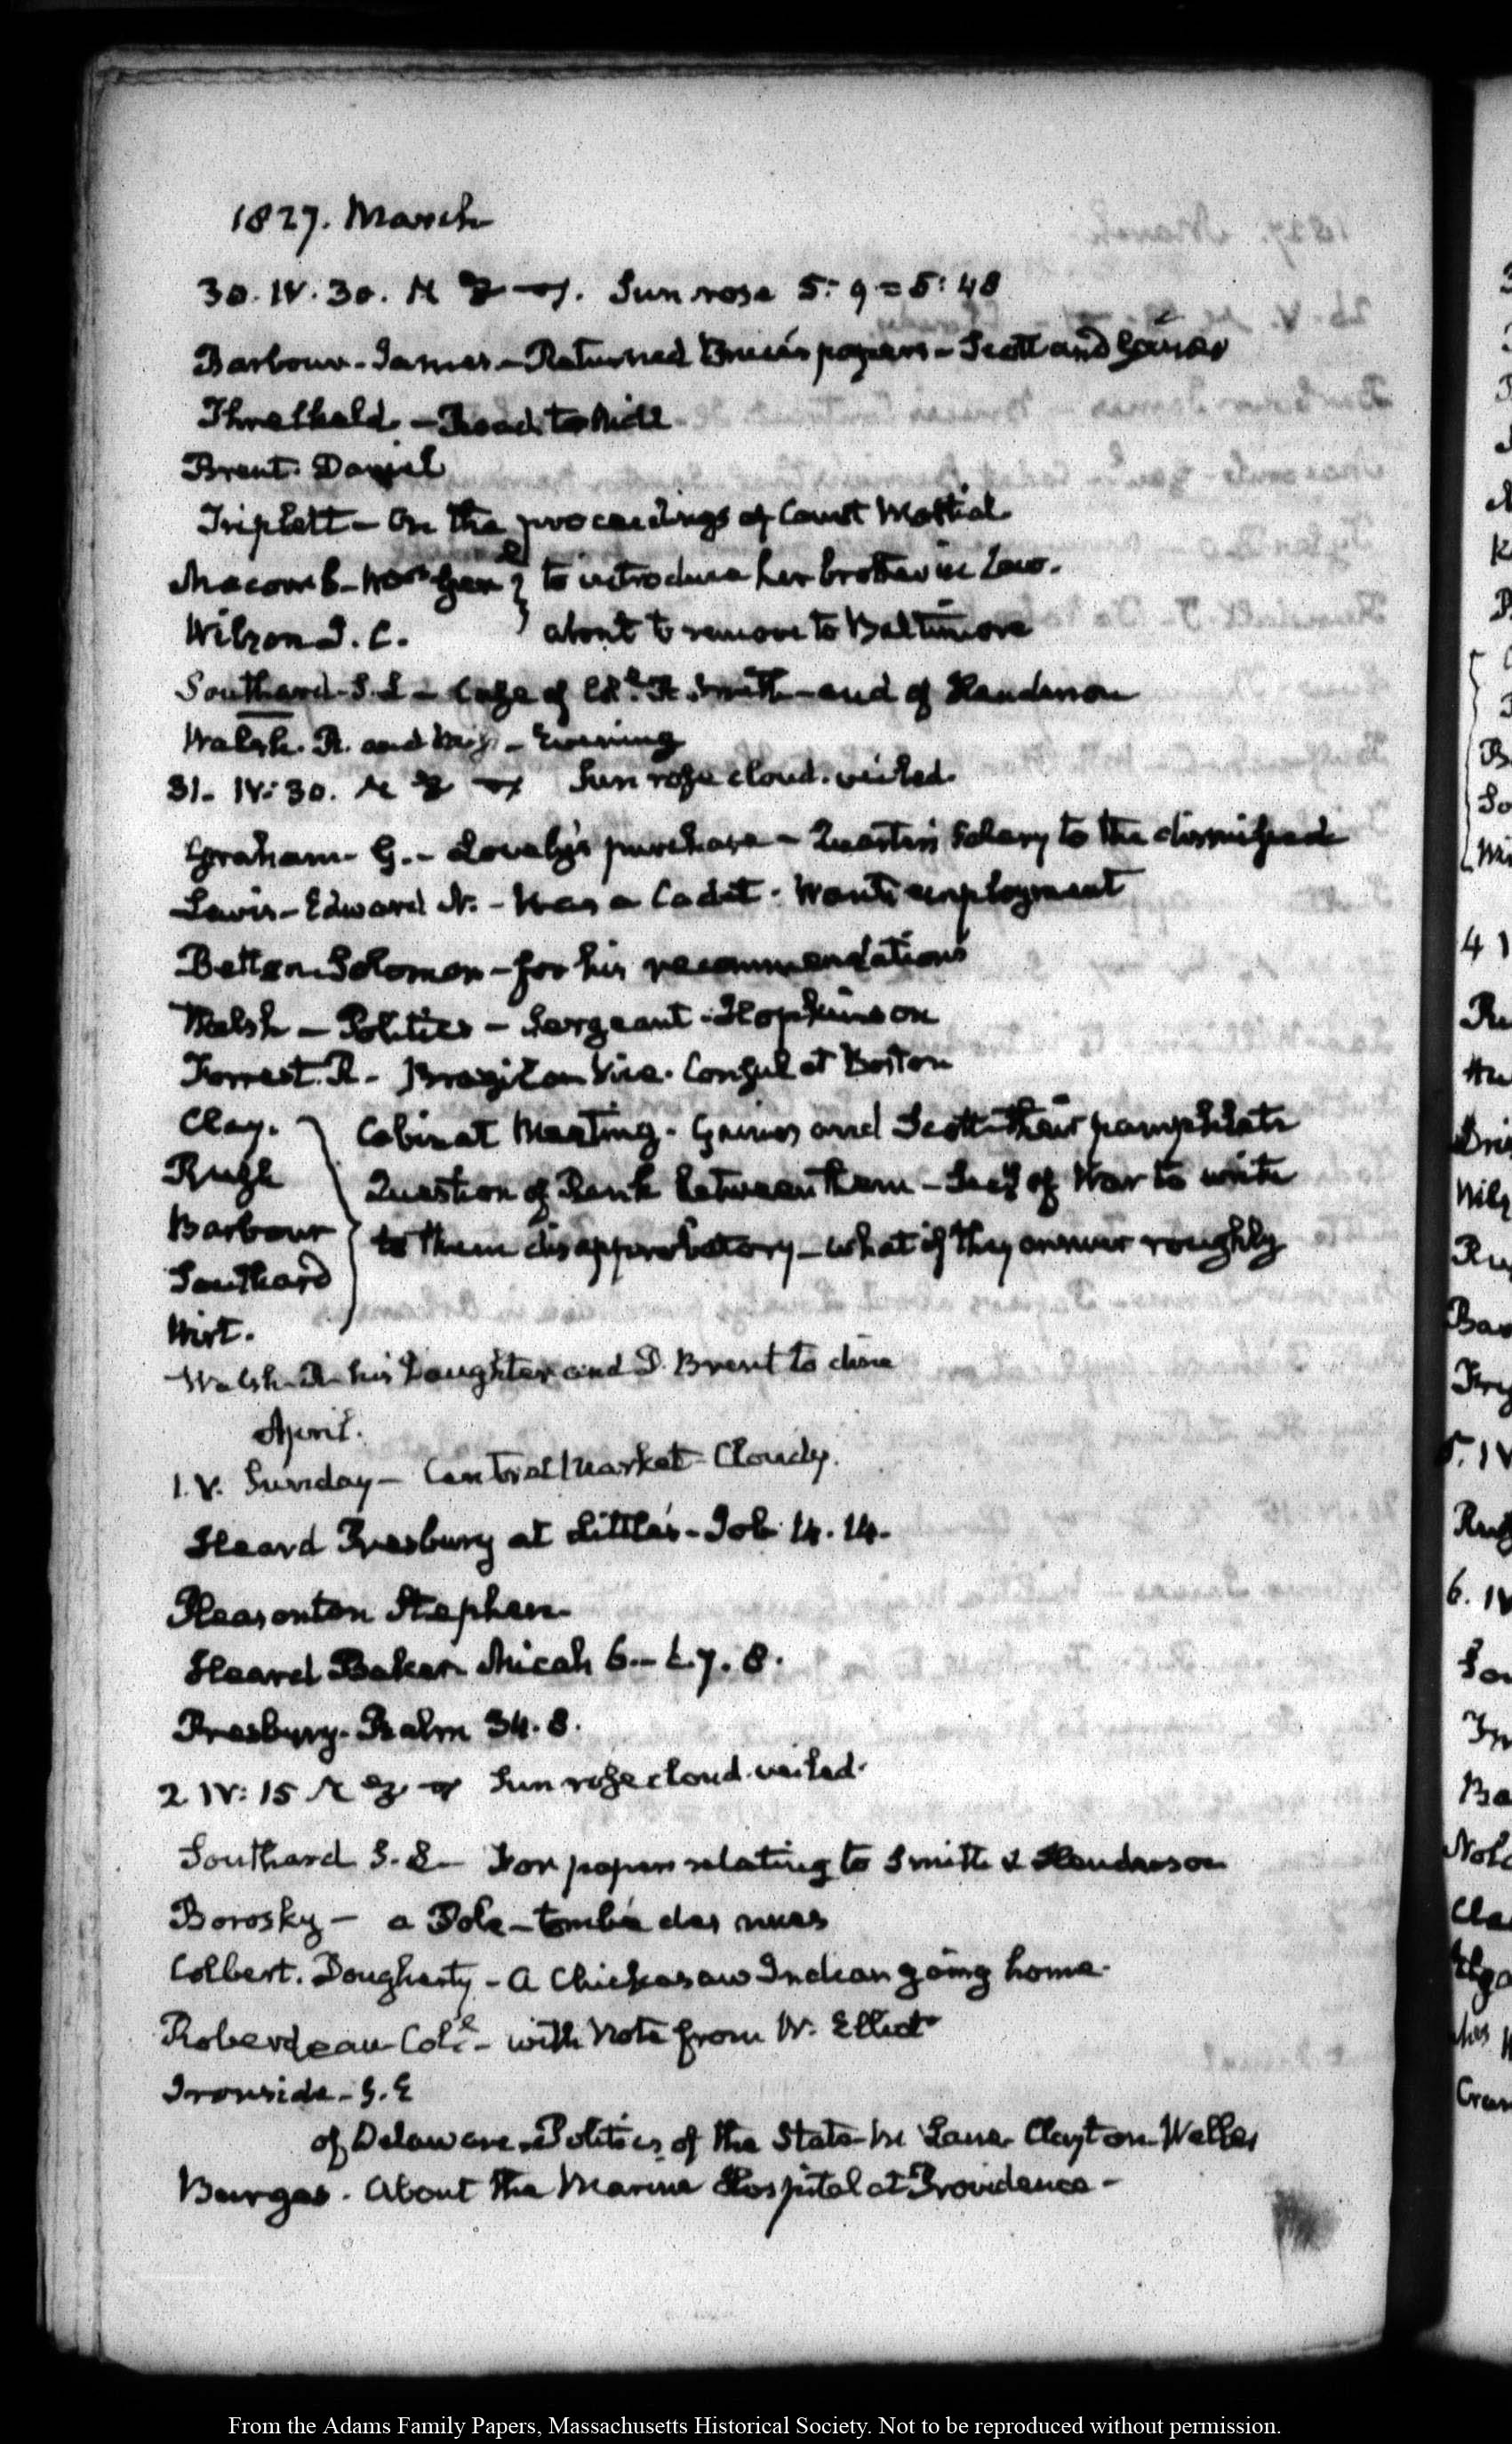 1827. March
30. IV. 30. Sun rose 5:9 = 5:48
Barbour - James - Returned Brice's papers - Scott and Gaines
Threlkeld - Road to hill
Brent. Daniel
Triplett - On the proceedings of Court Martial
Macomb - Genl } to introduce her brother in Law.
Wilson J. C. } about to remove to Baltimore
Southard - S. L - Case of R. Smith - and of Henderson
Walsh. R. and Miss - Evening
31. IV: 30. Sun rose cloud-veiled.
Graham - G. - Lovely's purchase - Quarter's Salary to the dismissed
Lewis - Edward N. - Was a Cadet - Wants employment
Betton Solomon - for his recommendations
Walsh - Politics - Sergeant - Hopkinson
Forrest. R - Brazilian Vice-Consul at Boston
Clay. } Cabinet Meeting - Gaines and Scott - their pamphlets
Rush } Question of Rank between them - Secy of War to write
Barbour } to them disapprobatory - what if they answer roughly
Southard
Wirt.
Walsh - R - his Daughter and D. Brent to dine
April.
1. V. Sunday - Central Market - Cloudy.
Heard Presbury at Little's - Job 14. 14.
Pleasonton Stephen
Heard Baker Micah 6 - 6. 7. 8.
Presbury - Psalm 34. 8.
2 IV: 15 Sun rose cloud-veiled.
Southard S. L - For papers relating to Smith & Henderson
Borosky - a Pole - tombé des nues
Colbert. Dougherty - A Chickasaw Indian going home.
Roberdeau Coll. - with Note from W. Elliot
Ironside - G. E
of Delaware - Politics of the State - Lane Clayton Welles
Burges - About the Marine Hospital at Providence -
From the Adams Family Papers, Massachusetts Historical Society. Not to be reproduced without permission.